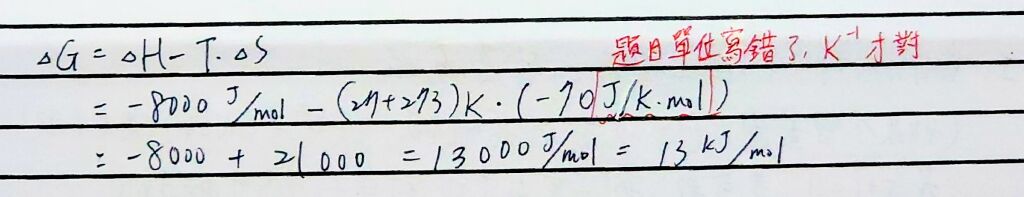 △G = △H - T·△S
題目單位寫錯了, K⁻¹ 才對
= -8000 J/mol - (27+273)K · (-70 J/K·mol)
= -8000 + 21000 = 13000 J/mol = 13 kJ/mol